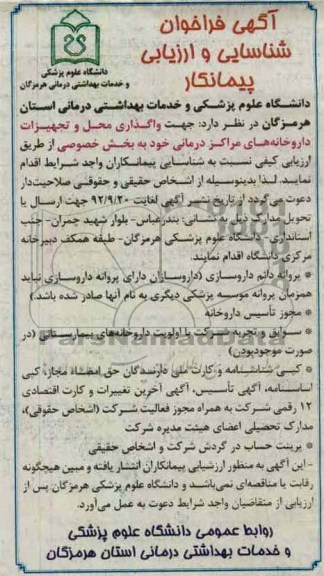 آگهی فراخوان
شناسایی و ارزیابی
پیمانکار
دانشگاه علوم پزشکی
و خدمات بهداشتی درمانی هرمزگان
دانشگاه علوم پزشکی و خدمات بهداشتی درمانی استان
هرمزگان در نظر دارد: جهت واگذاری محل و تجهیزات
داروخانه‌های مراکز درمانی خود به بخش خصوصی از طریق
ارزیابی کیفی نسبت به شناسایی پیمانکاران واجد شرایط اقدام
نماید. لذا بدینوسیله از اشخاص حقیقی و حقوقی صلاحیت‌دار
دعوت می‌گردد از تاریخ نشر آگهی لغایت ۹۲/۹/۲۰ جهت ارسال یا
تحویل مدارک ذیل به نشانی: بندرعباس- بلوار شهید چمران- جنب
استانداری- دانشگاه علوم پزشکی هرمزگان- طبقه همکف دبیرخانه
مرکزی دانشگاه اقدام نمایند.
* پروانه دائم داروسازی (داروسازان دارای پروانه داروسازی نباید
همزمان پروانه موسسه پزشکی دیگری به نام آنها صادر شده باشد.)
* مجوز تأسیس داروخانه
* سوابق و تجربه شرکت با اولویت داروخانه‌های بیمارستانی (در
صورت موجودبودن)
* کپی شناسنامه و کارت ملی دارندگان حق امضاء مجاز، کپی
اساسنامه، آگهی تأسیس، آگهی آخرین تغییرات و کارت اقتصادی
۱۲ رقمی شرکت به همراه مجوز فعالیت شرکت (اشخاص حقوقی)،
مدارک تحصیلی اعضای هیئت مدیره شرکت
* پرینت حساب در گردش شرکت و اشخاص حقیقی
-این آگهی به منظور ارزشیابی پیمانکاران انتشار یافته و مبین هیچگونه
رقابت یا مناقصه‌ای نمی‌باشد و دانشگاه علوم پزشکی هرمزگان پس از
ارزیابی از متقاضیان واجد شرایط دعوت به عمل می‌آورد.
روابط عمومی دانشگاه علوم پزشکی
و خدمات بهداشتی درمانی استان هرمزگان